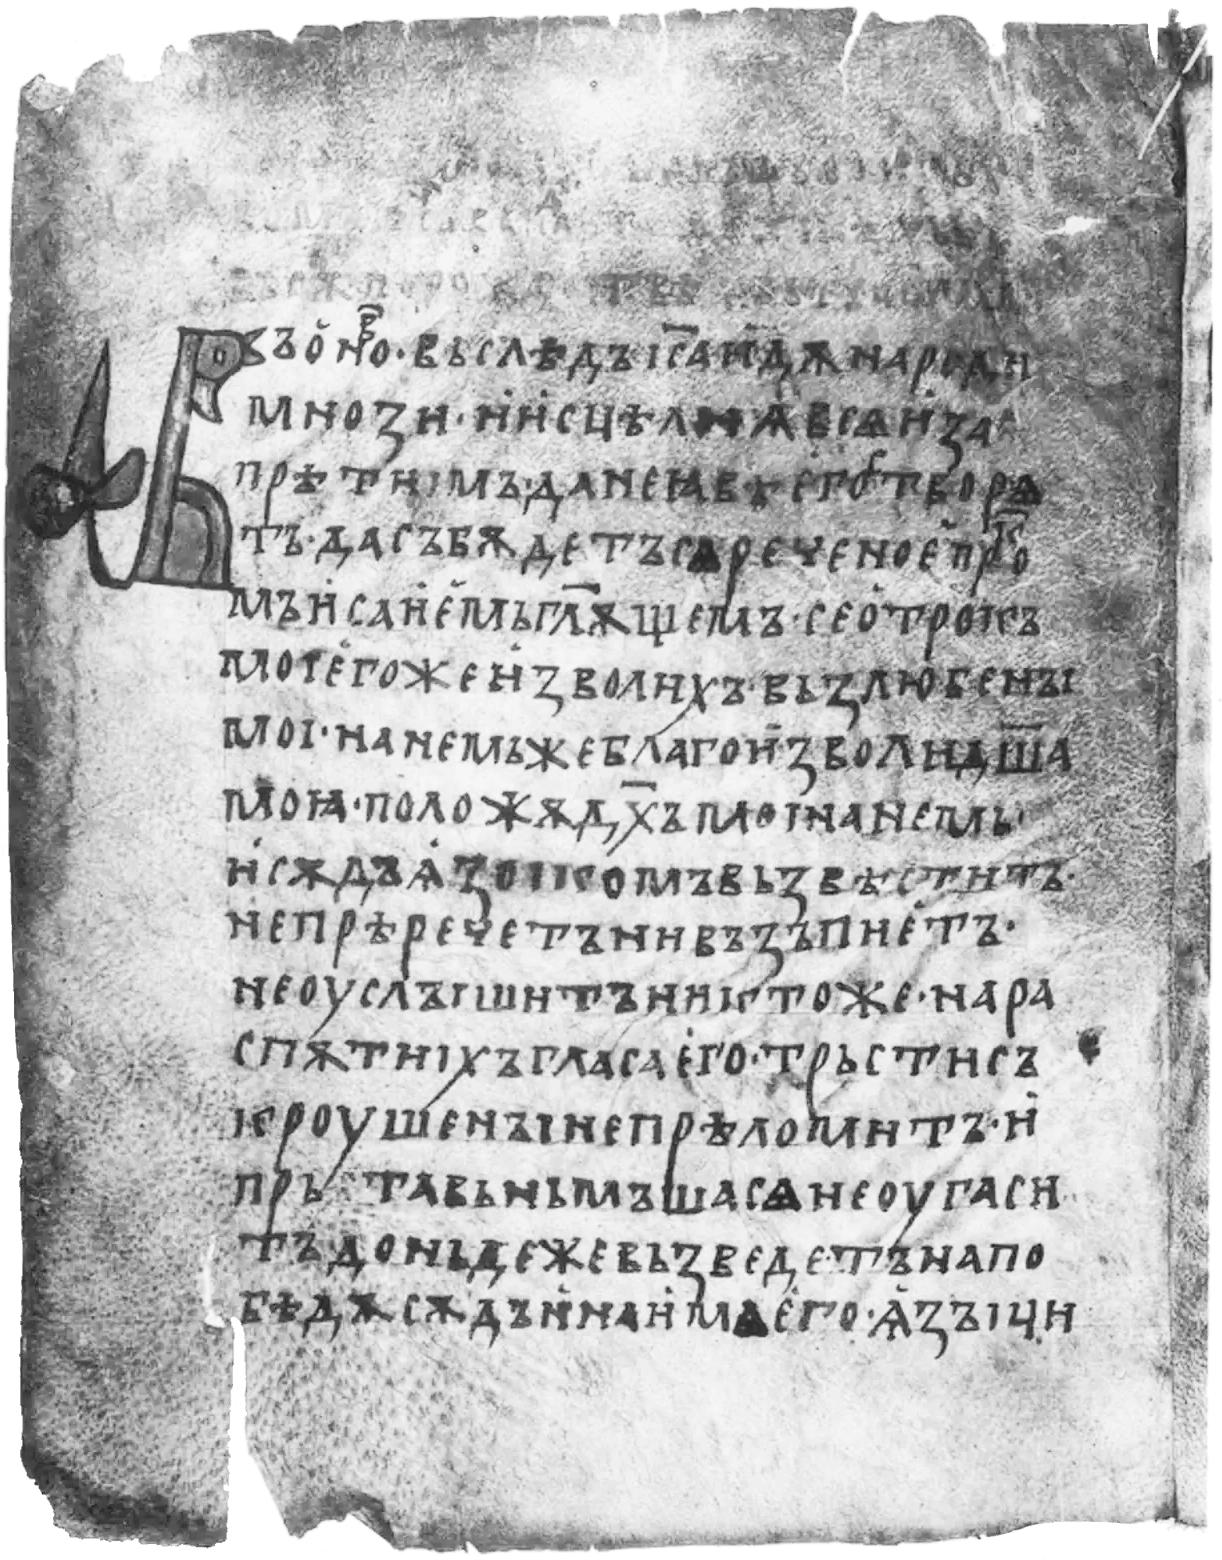 Въ о҆но врⷨѣ · вьслѣдъ і҃са и҆дѫ народи
мнози · и҆ и҆сцѣли ѩ вьсѧ и҆ за
прѣти імъ · да не ꙗвѣ е҆го створѧ
тъ · да събѫдетъ сѧ реченое пр҃ро
мъ и҆саие҆мь гл҃ѫщемъ · се о҆трокъ
мої е҆гоже и҆зволихъ · вьзлюбенꙑ
мої · на немьже благои҆зволи дш҃а
моꙗ · положѫ дх҃ъ мої на немь ·
и҆ сѫдъ ѧ҆зꙑкомъ вьзвѣститъ ·
не прѣречетъ ни възъпие҆тъ ·
не оуслꙑшитъ никтоже · на ра
спѫтиіхъ гласа е҆го · трьсти съ
кроушенꙑ не прѣломитъ · и҆
пръ ставьньмъша сѧ не оугаси
тъ доньдеже вьзведетъ на по
бѣдѫ сѫдъ и҆ на и҆мѧ е҆го · ѧ҆зꙑци